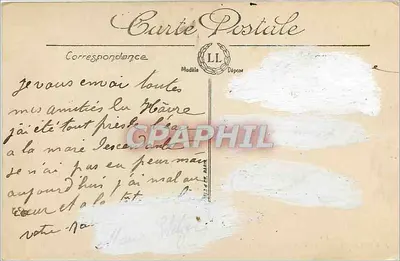 Carte Postale
Correspondance
LL
Modèle Déposé
Je vous envoi toutes
mes amitiés du Hâvre
j'ai été tout près de l'eau
a la mare descendante
je n'ai pas eu peur mais
aujourd'hui j'ai mal au
cœur et a la tet
votre
CPAPHIL